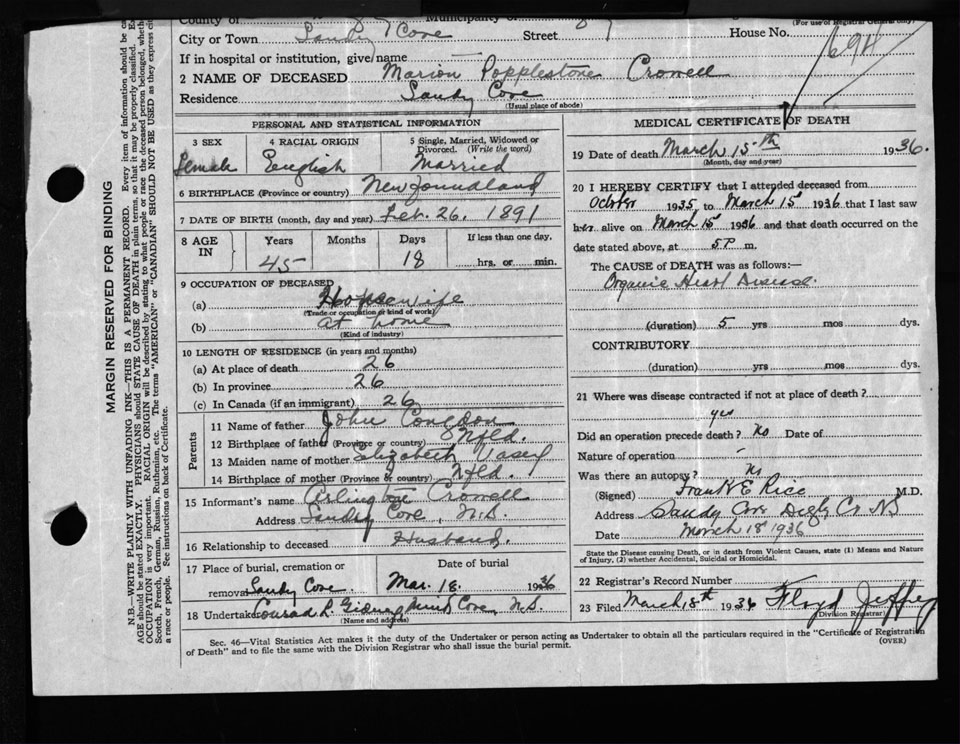 County of Municipality of
(For use of Registrar General only)
City or Town Sandy Cove Street House No.
694
If in hospital or institution, give name
2 NAME OF DECEASED Marion Popplestone Crowell
Residence Sandy Cove
(Usual place of abode)
MARGIN RESERVED FOR BINDING
N.B.—WRITE PLAINLY WITH UNFADING INK—THIS IS A PERMANENT RECORD. Every item of information should be
AGE should be stated EXACTLY. PHYSICIANS should STATE CAUSE OF DEATH in plain terms, so that it may be properly classified.
OCCUPATION is very important. RACIAL ORIGIN will be described by stating to what people or race the deceased person belonged,
Scotch, French, German, Russian, Ruthenian, etc. The terms "AMERICAN" or "CANADIAN" SHOULD NOT BE USED as they express
a race or people. See instructions on back of Certificate.
PERSONAL AND STATISTICAL INFORMATION
3 SEX 4 RACIAL ORIGIN 5 Single, Married, Widowed or
Divorced. (Write the word)
Female English Married
6 BIRTHPLACE (Province or country) Newfoundland
7 DATE OF BIRTH (month, day and year) Feb. 26. 1891
8 AGE IN Years Months Days If less than one day.
45 18 hrs. or min.
9 OCCUPATION OF DECEASED
(a) Housewife
(Trade or occupation or kind of work)
(b) at home
(Kind of industry)
10 LENGTH OF RESIDENCE (in years and months)
(a) At place of death 26
(b) In province 26
(c) In Canada (if an immigrant) 26
Parents
11 Name of father John Congdon
12 Birthplace of father (Province or country) Nfld.
13 Maiden name of mother Elizabeth
14 Birthplace of mother (Province or country) Nfld.
15 Informant's name Arlington Crowell
Address Sandy Cove, N.S.
16 Relationship to deceased Husband.
17 Place of burial, cremation or Date of burial
removal Sandy Cove. Mar. 18. 1936
18 Undertaker Conrad R. Gidney Mink Cove, N.S.
(Name and address)
MEDICAL CERTIFICATE OF DEATH
19 Date of death March 15th 1936.
(Month, day and year)
20 I HEREBY CERTIFY that I attended deceased from
October 1935 to March 15 1936 that I last saw
her alive on March 15 1936 and that death occurred on the
date stated above, at 5 P m.
The CAUSE of DEATH was as follows:—
Organic Heart Disease.
(duration) 5 yrs mos dys.
CONTRIBUTORY
(duration) yrs mos dys.
21 Where was disease contracted if not at place of death?
yes
Did an operation precede death? No Date of
Nature of operation -
Was there an autopsy? No
(Signed) Frank E Rice M.D.
Address Sandy Cove Digby Co NS
Date March 18 1936
State the Disease causing Death, or in death from Violent Causes, state (1) Means and Nature
of Injury, (2) whether Accidental, Suicidal or Homicidal.
22 Registrar's Record Number
23 Filed March 18th 1936 Floyd Jeffrey
(Division Registrar)
Sec. 46—Vital Statistics Act makes it the duty of the Undertaker or person acting as Undertaker to obtain all the particulars required in the "Certificate of Registration
of Death" and to file the same with the Division Registrar who shall issue the burial permit. (OVER)